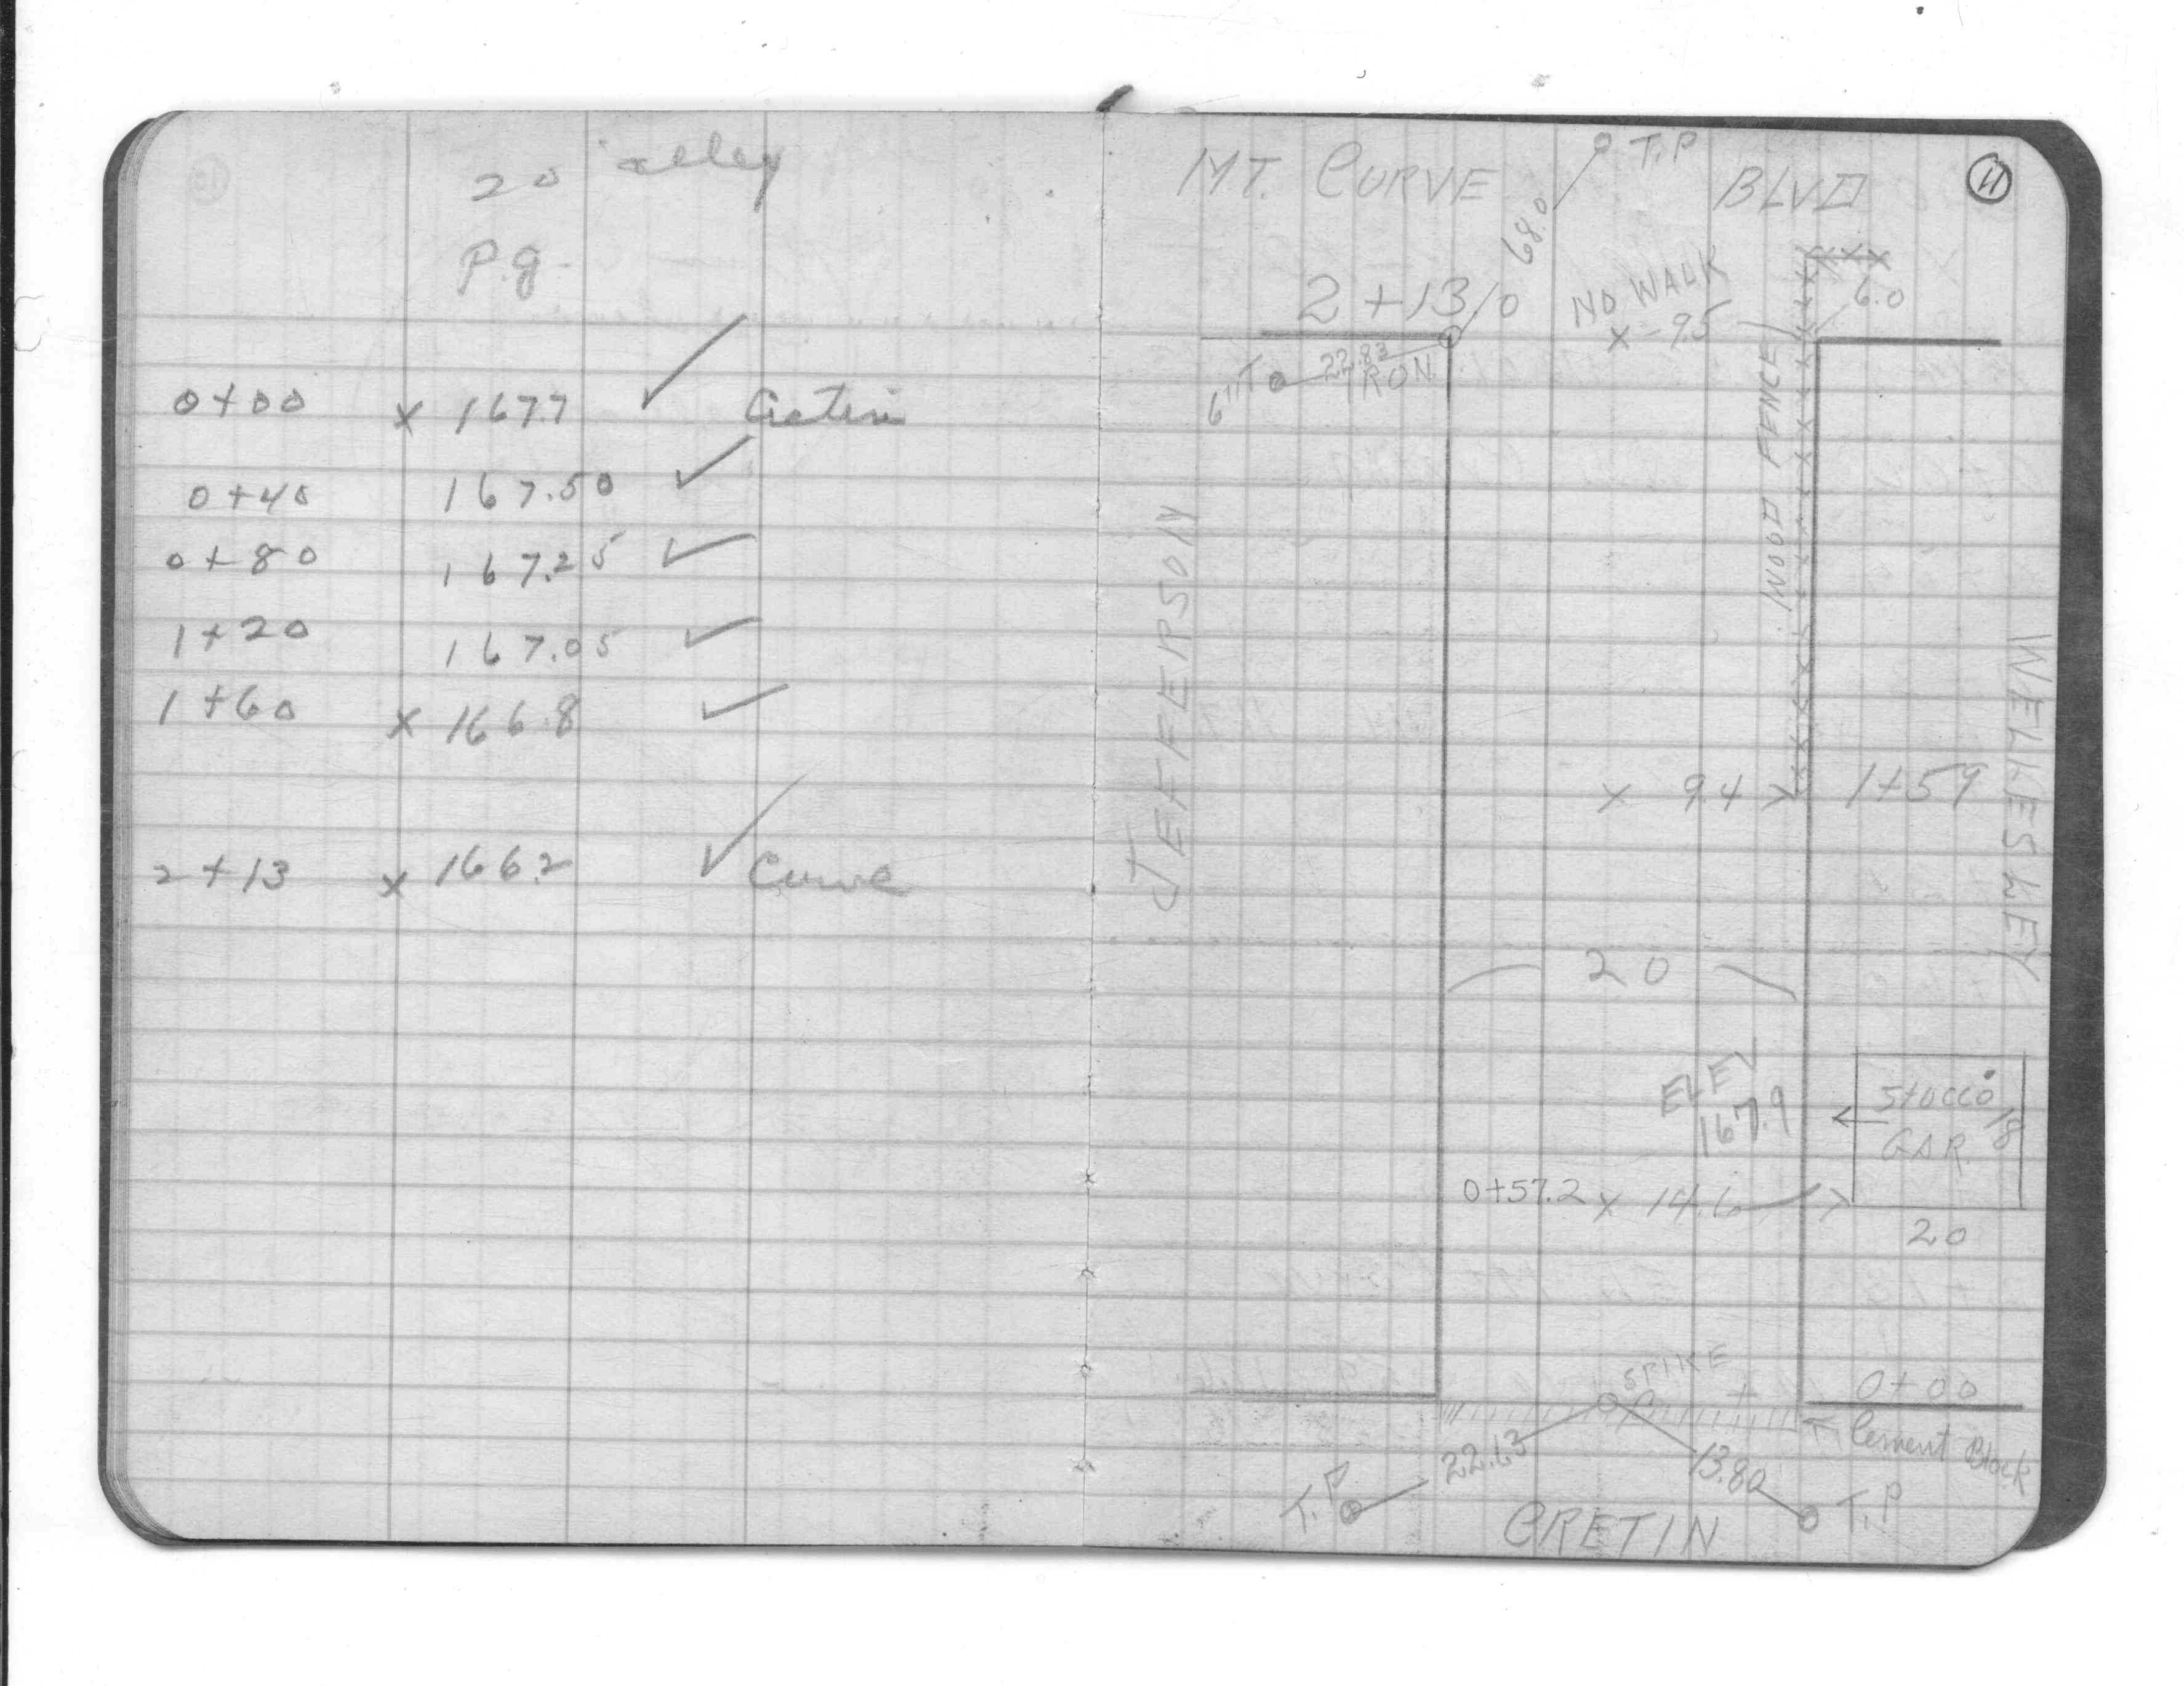 20' alley
P.g.
0+00 x 167.7 ✓ Cretin
0+40 167.50 ✓
0+80 167.25 ✓
1+20 167.05 ✓
1+60 x 166.8 ✓
2+13 x 166.2 ✓ Curve
11
T.P
MT. CURVE BLVD
68.0
2+13
NO WALK
x-9.5
6.0
6"T 22.83
IRON
WOOD FENCE
JEFFERSON
WELLESLEY
x 9.4 > 1+59
20
ELEV
167.9
STUCCO
GAR.
18
0+57.2 x 14.6
20
SPIKE
0+00
Cement Block
22.13
13.80
T.P
T.P
CRETIN